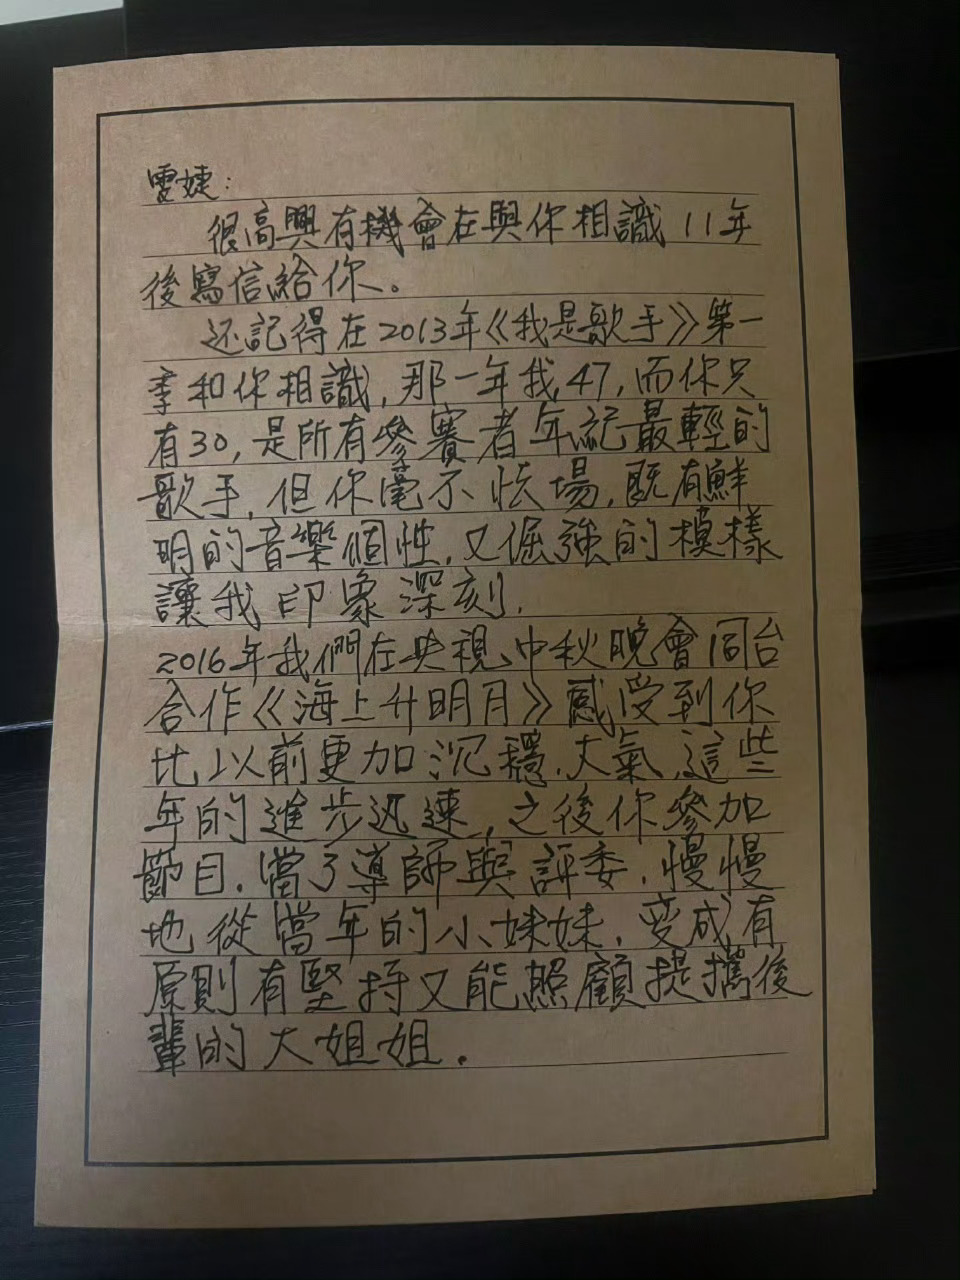 雯婕：
很高興有機會在與你相識11年
後寫信給你。
还記得在2013年《我是歌手》第一
季和你相識，那一年我47，而你只
有30，是所有參賽者年紀最輕的
歌手，但你毫不怯場，既有鮮
明的音樂個性，又倔強的模樣
讓我印象深刻，
2016年我們在央視中秋晚會同台
合作《海上升明月》感受到你
比以前更加沉穩，大氣，這些
年的進步迅速，之後你參加
節目，當了導師與評委，慢慢
地從當年的小妹妹，变成有
原則有堅持又能照顧提攜後
輩的大姐姐。